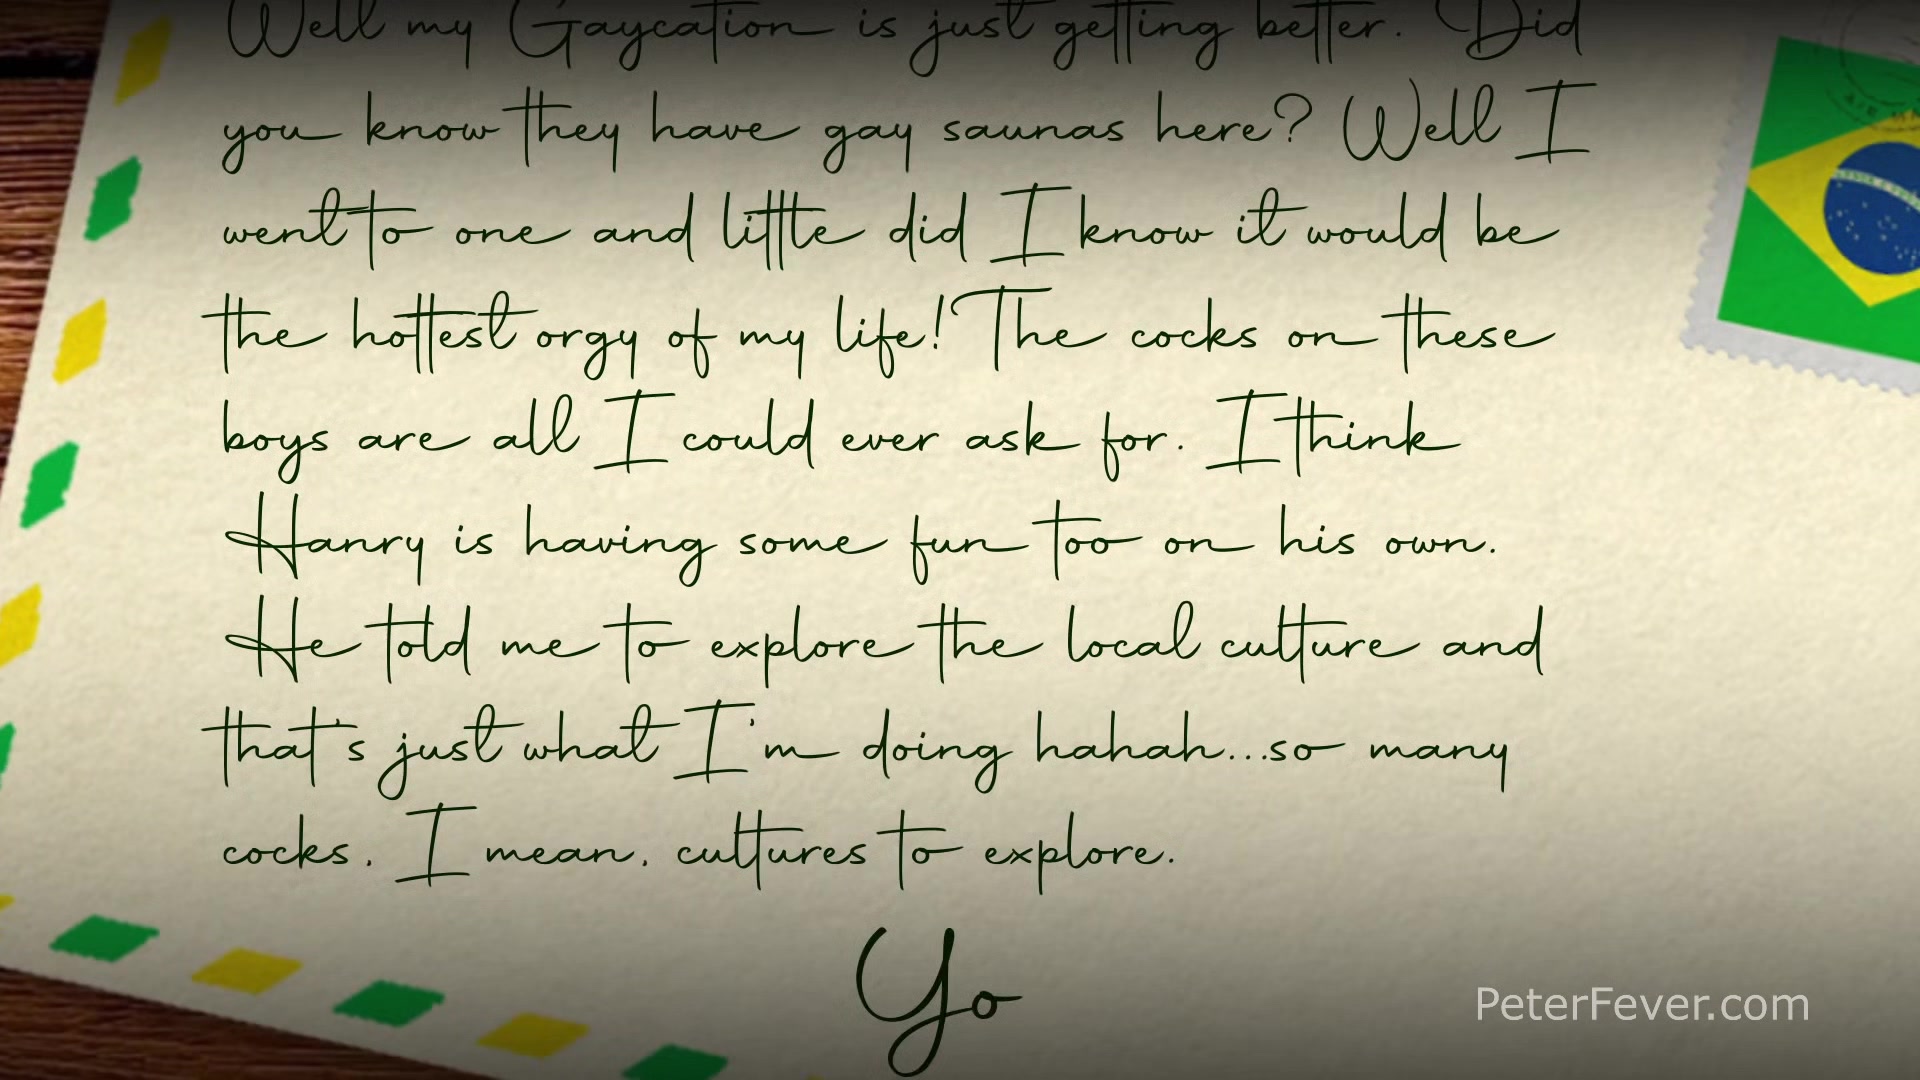 Well my Gaycation is just getting better. Did
you know they have gay saunas here? Well I
went to one and little did I know it would be
the hottest orgy of my life! The cocks on these
boys are all I could ever ask for. I think
Hanry is having some fun too on his own.
He told me to explore the local culture and
that's just what I'm doing hahah...so many
cocks, I mean, cultures to explore.
Yo
PeterFever.com